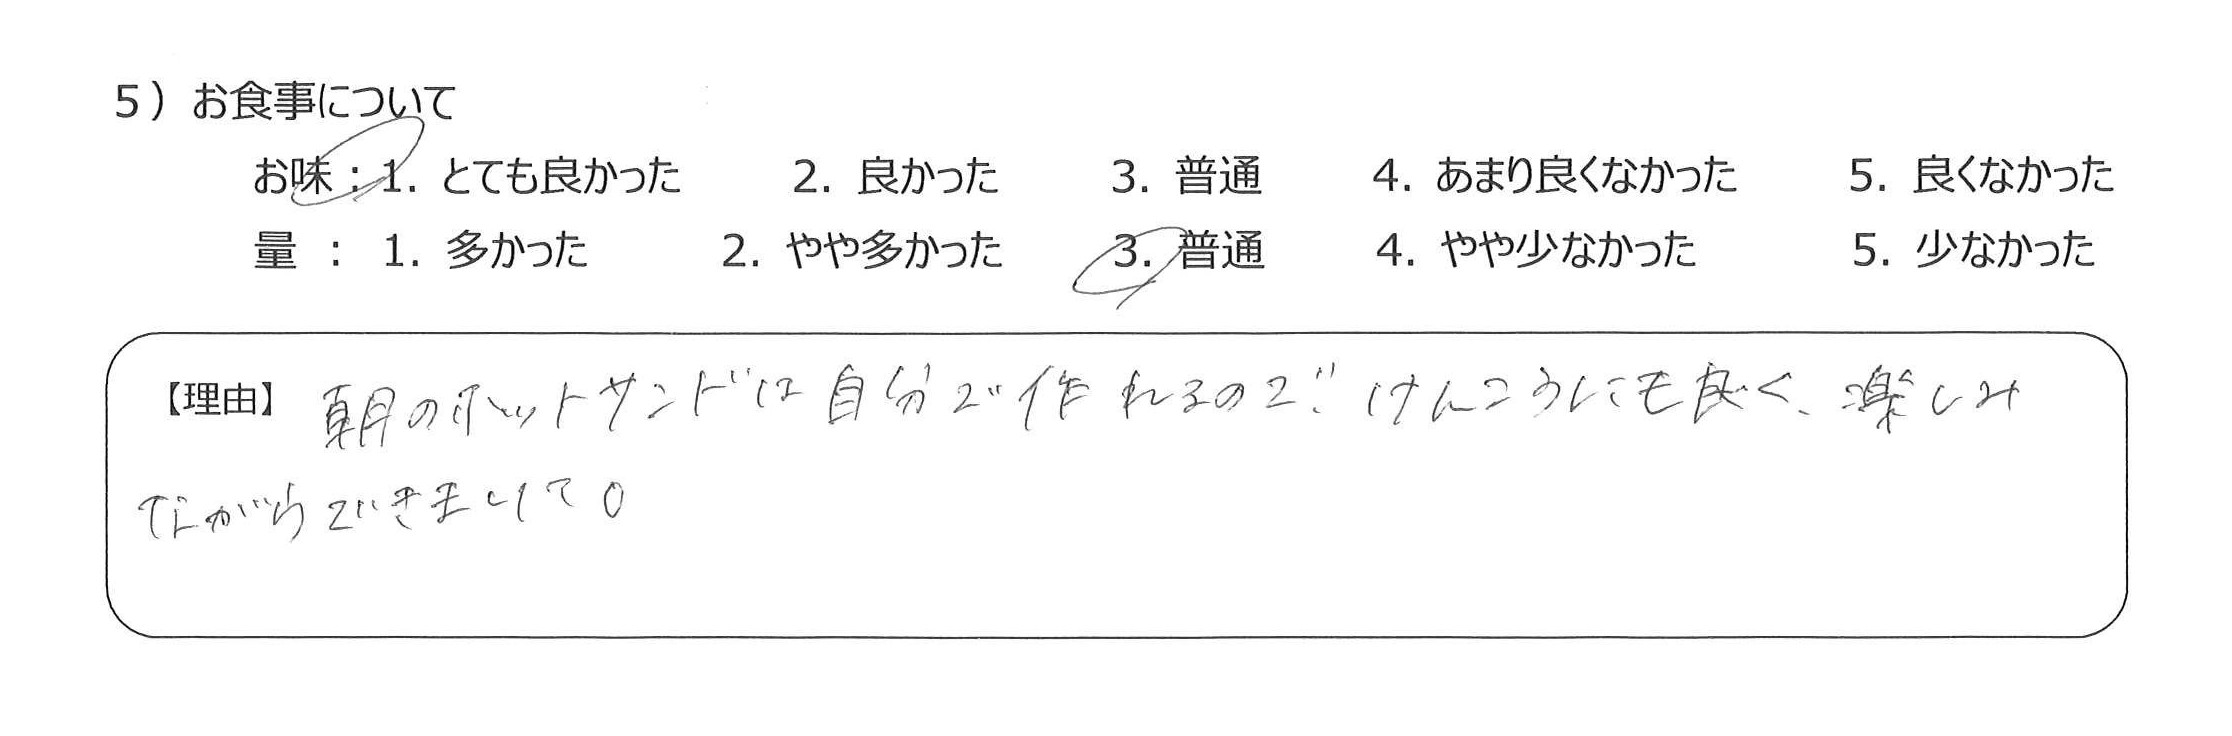 5）お食事について
お味：1. とても良かった 2. 良かった 3. 普通 4. あまり良くなかった 5. 良くなかった
量 ： 1. 多かった 2. やや多かった 3. 普通 4. やや少なかった 5. 少なかった
【理由】 朝のホットサンドは自分で作れるので、けんこうにも良く、楽しみ
ながらできまして。